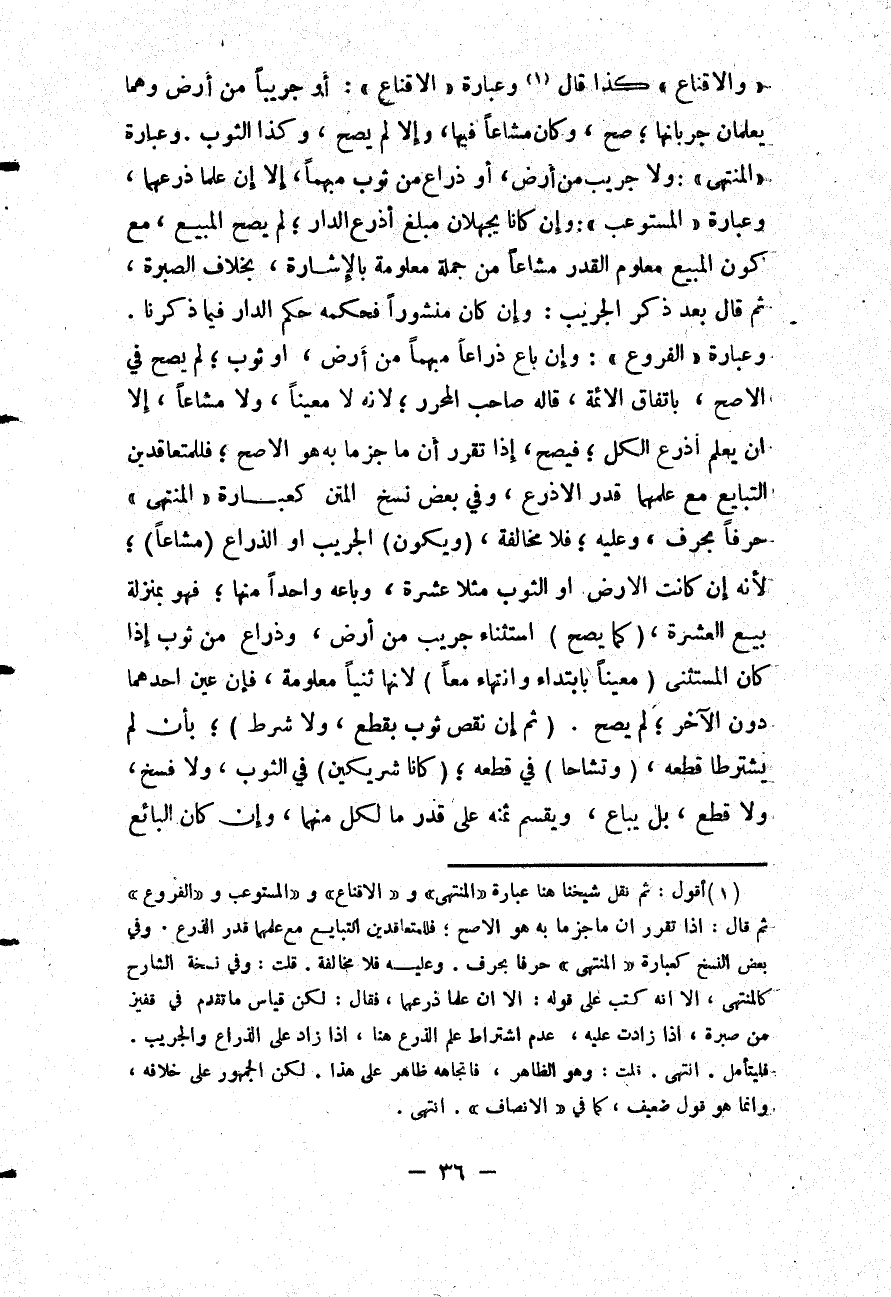 « والاقناع » كذا قال (١) وعبارة « الاقناع » : أو جريباً من أرض وهما
يعلمان جربانها ؛ صح ، وكان مشاعاً فيها، وإلا لم يصح ، وكذا الثوب . وعبارة
«المنتهى» : ولا جريب من أرض، أو ذراع من ثوب مبهماً، إلا إن علما ذرعهما ،
وعبارة « المستوعب »: وإن كانا يجهلان مبلغ أذرع الدار ؛ لم يصح المبيع ، مع
كون المبيع معلوم القدر مشاعاً من جملة معلومة بالإشارة ، بخلاف الصبرة ،
ثم قال بعد ذكر الجريب : وإن كان منشوراً فحكمه حكم الدار فيما ذكرنا .
وعبارة « الفروع » : وإن باع ذراعاً مبهماً من أرض ، او ثوب ؛ لم يصح في
الاصح ، باتفاق الائمة ، قاله صاحب المحرر ؛ لانه لا معيناً ، ولا مشاعاً ، إلا
ان يعلم أذرع الكل ؛ فيصح، إذا تقرر أن ما جزما به هو الاصح ؛ فللمتعاقدين
التبايع مع علمهما قدر الاذرع ، وفي بعض نسخ المتن كعبارة « المنتهى »
حرفاً بحرف ، وعليه ؛ فلا مخالفة ، (ويكون) الجريب او الذراع (مشاعاً) ؛
لأنه إن كانت الارض او الثوب مثلا عشرة ، وباعه واحداً منها ؛ فهو بمنزلة
بيع العشرة ، ( كما يصح ) استثناء جريب من أرض ، وذراع من ثوب إذا
كان المستثنى ( معيناً بابتداء وانتهاء معاً ) لانها ثنياً معلومة ، فإن عين احدهما
دون الآخر ؛ لم يصح . ( ثم إن نقص ثوب بقطع ، ولا شرط ) ؛ بأن لم
يشترطا قطعه ، ( وتشاحا ) في قطعه ؛ ( كانا شريكين) في الثوب ، ولا فسخ،
ولا قطع ، بل يباع ، ويقسم ثمنه على قدر ما لكل منهما ، وإن كان البائع
(١) أقول : ثم نقل شيخنا هنا عبارة «المنتهى» و « الاقناع» و «المستوعب و «الفروع »
ثم قال : اذا تقرر ان ماجزما به هو الاصح ؛ فللمتعاقدين التبايع مع علمهما قدر الذرع . وفي
بعض النسخ كعبارة « المنتهى » حرفا بحرف . وعليه فلا مخالفة . قلت : وفي نسخة الشارح
كالمنتهى ، الا انه كتب على قوله : الا ان علما ذرعهما ، فقال : لكن قياس ماتقدم في قفيز
من صبرة ، اذا زادت عليه ، عدم اشتراط علم الذرع هنا ، اذا زاد على الذراع والجريب .
فليتأمل . انتهى . قلت : وهو الظاهر ، فاتجاهه ظاهر على هذا . لكن الجمهور على خلافه ،
وانما هو قول ضعيف ، كما في « الانصاف » . انتهى .
— ٣٦ —